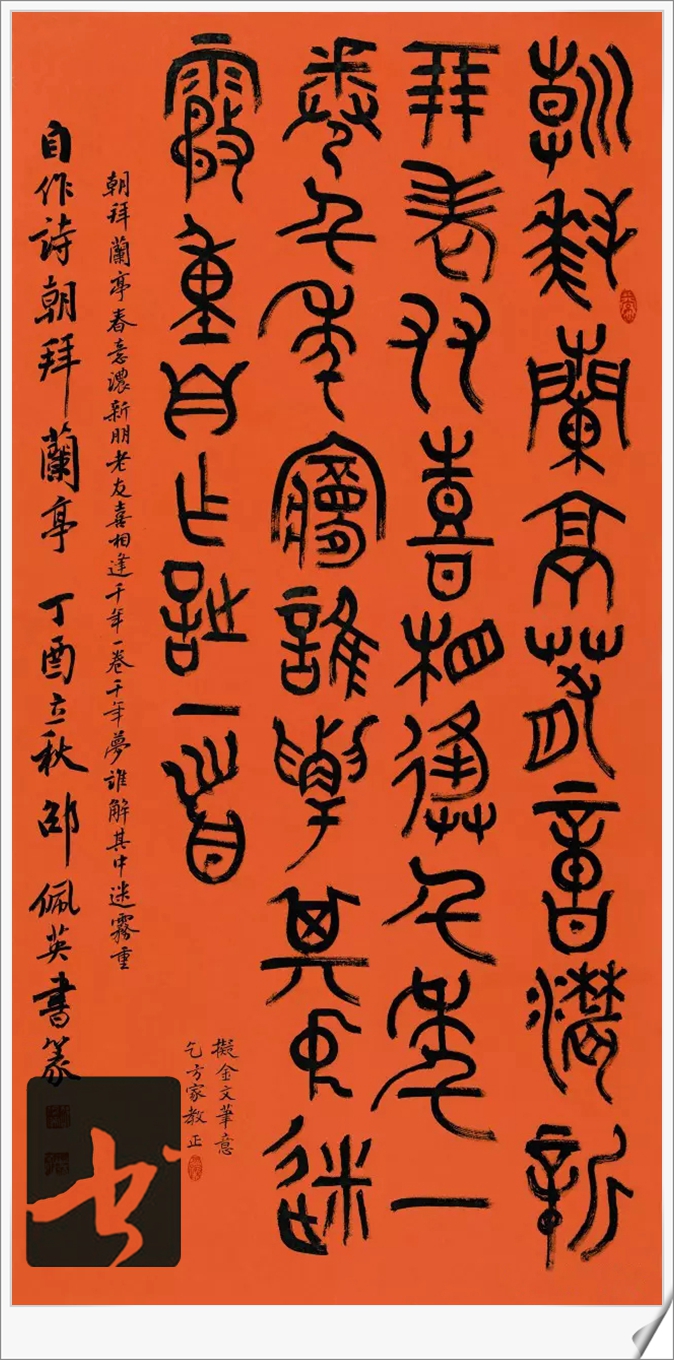 朝拜蘭亭春意濃新
朋老友喜相逢千年一
卷千年夢誰解其中迷
霧重自作詩一首
朝拜蘭亭春意濃新朋老友喜相逢千年一卷千年夢誰解其中迷霧重
自作詩朝拜蘭亭 丁酉立秋邵佩英書篆
擬金文筆意
乞方家教正
书